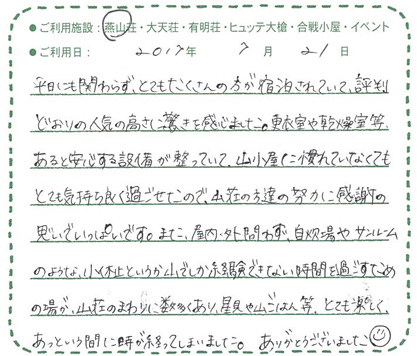 ●ご利用施設：燕山荘・大天荘・有明荘・ヒュッテ大槍・合戦小屋・イベント
●ご利用日： 2017年 9月 21日
平日にも関わらず、とてもたくさんの方が宿泊されていて、評判
どおりの人気の高さに驚きを感じました。更衣室や乾燥室等、
あると安心する設備が整っていて、山小屋に慣れていなくても
とても気持ち良く過ごせたので、山荘の方達の努力に感謝の
思いでいっぱいです。また、屋内・外問わず、自炊場やサンルーム
のような、小休止というか山でしか経験できない時間を過ごすため
の場が、山荘のまわりに数多くあり、星見や山ごはん等、とても楽しく、
あっという間に時が経ってしまいました。 ありがとうございました